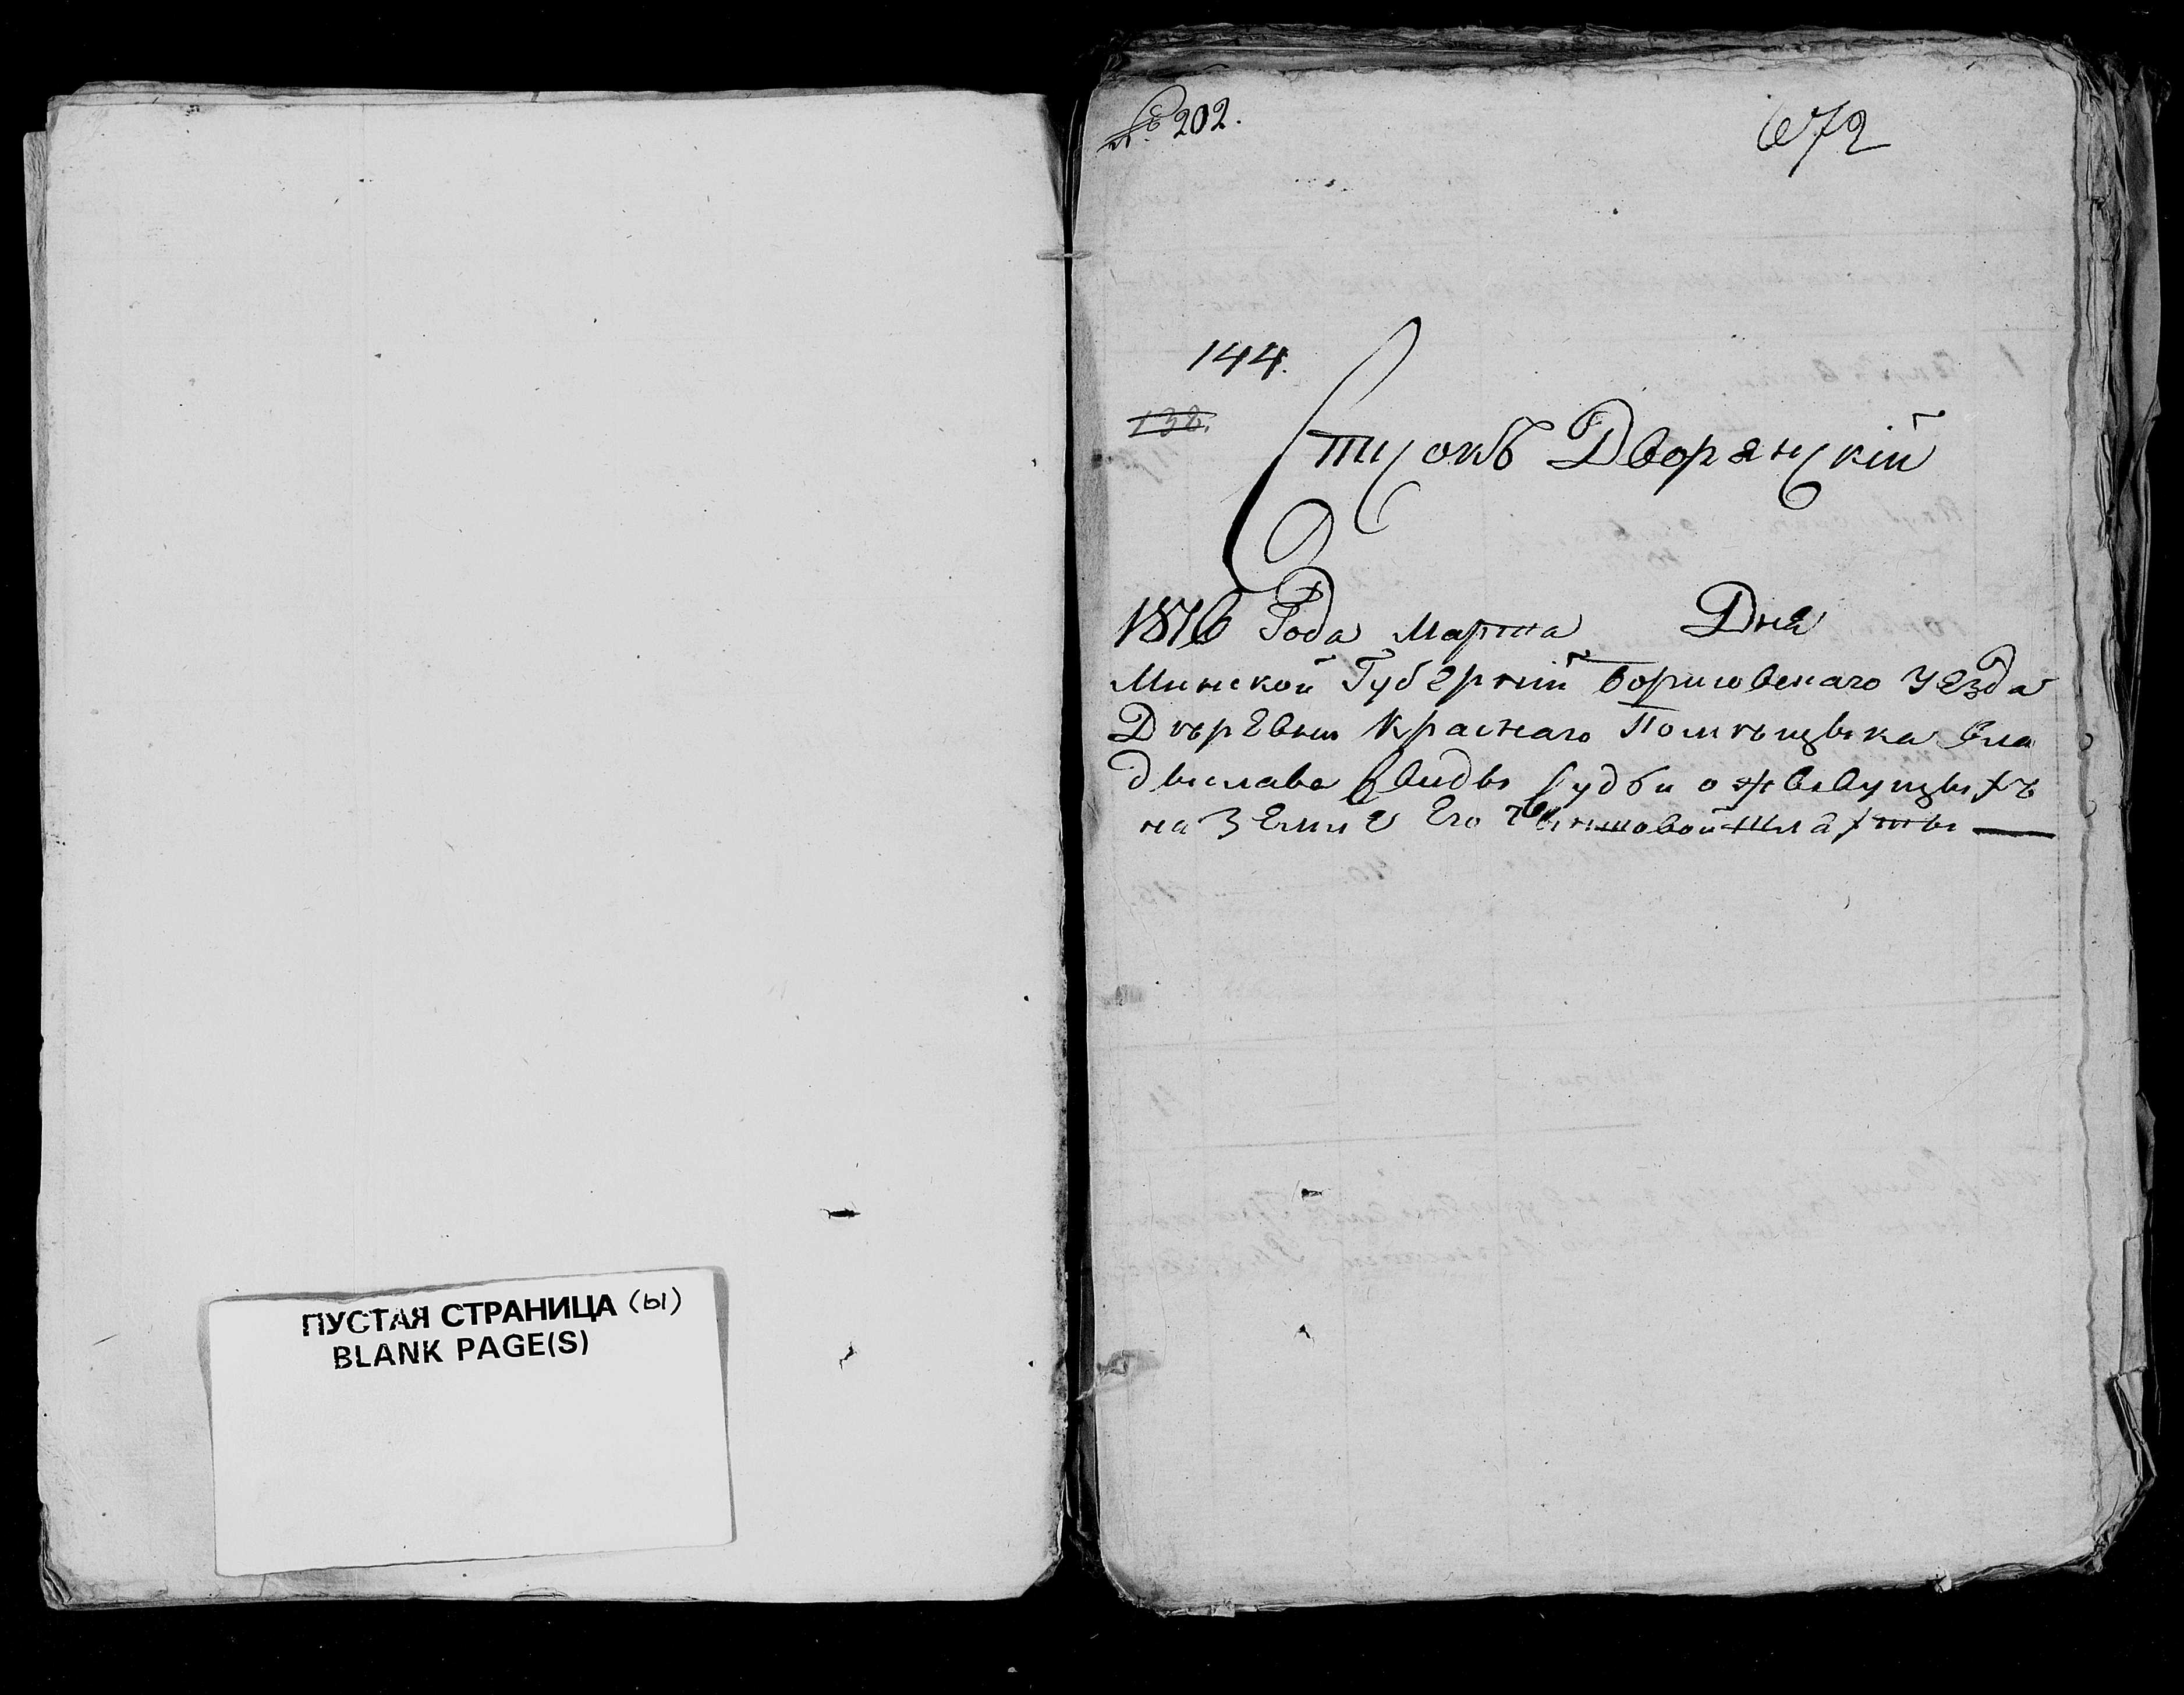 ПУСТАЯ СТРАНИЦА (ы)
BLANK PAGE(S)
№ 202.
672
144.
138.
Списокъ Дворянскій
1816 Года Марта Дня
Минской Губерніи Борисовскаго Уезда
Дѣревни Краснаго Помѣщыка Вла
дыслава судьи о жывущыхъ
на Земли Его Чыншовой шляхты